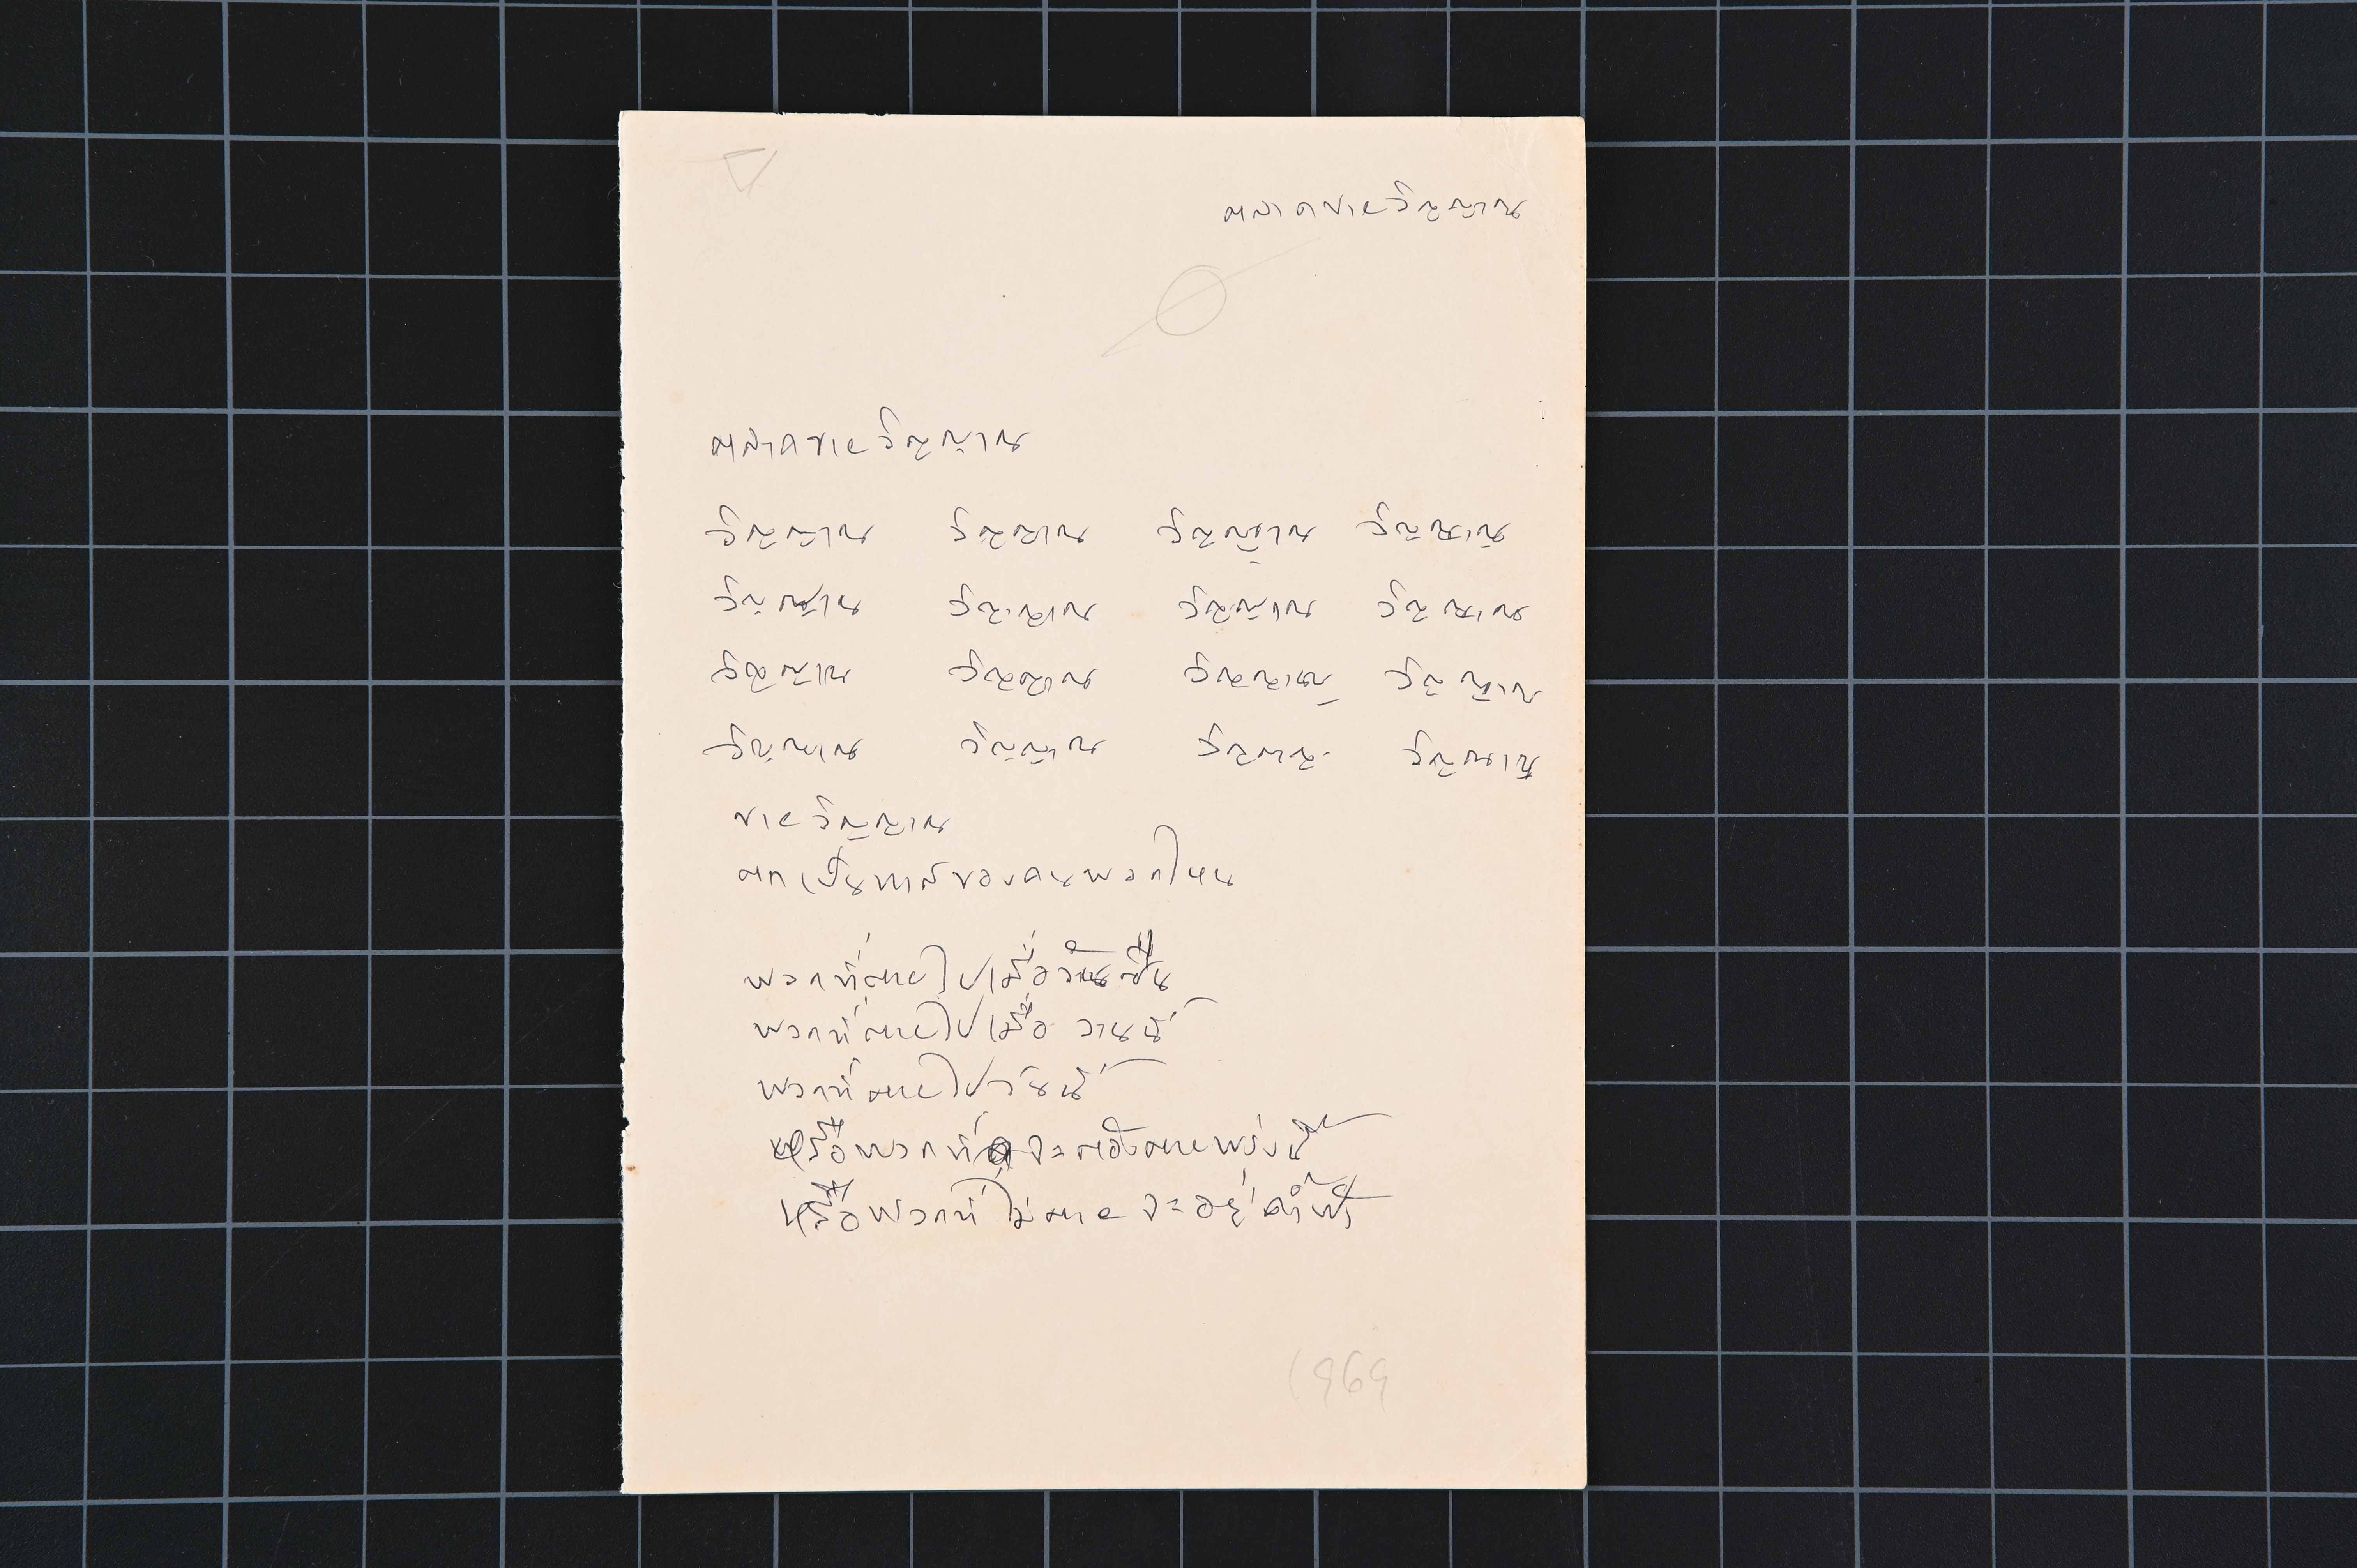 ตลาดขายวิญญาณ
ตลาดขายวิญญาณ
วิญญาณ วิญญาณ วิญญาณ วิญญาณ
วิญญาณ วิญญาณ วิญญาณ วิญญาณ
วิญญาณ วิญญาณ วิญญาณ วิญญาณ
วิญญาณ วิญญาณ วิญญาณ วิญญาณ
ขายวิญญาณ
ตกเป็นทาสของคนพวกไหน
พวกที่ตายไปเมื่อวานซืน
พวกที่ตายไปเมื่อวานนี้
พวกที่ตายไปวันนี้
หรือพวกที่จะต้องตายพรุ่งนี้
หรือพวกที่ไม่ตายจะอยู่ค้ำฟ้า
1969